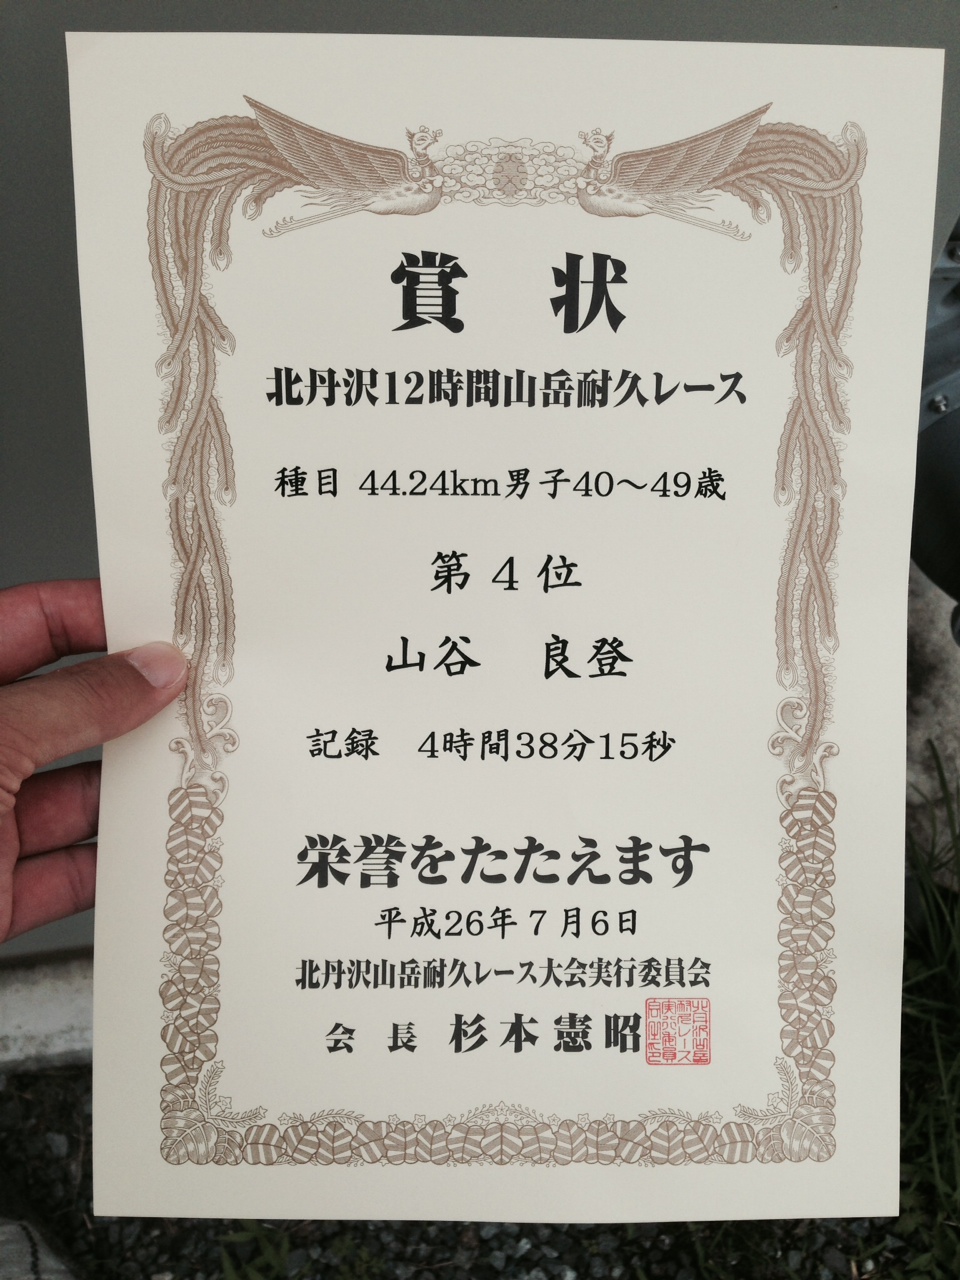 賞 状
北丹沢12時間山岳耐久レース
種目 44.24km男子40～49歳
第 4 位
山谷 良登
記録 4時間38分15秒
栄誉をたたえます
平成26年7月6日
北丹沢山岳耐久レース大会実行委員会
会 長 杉本憲昭